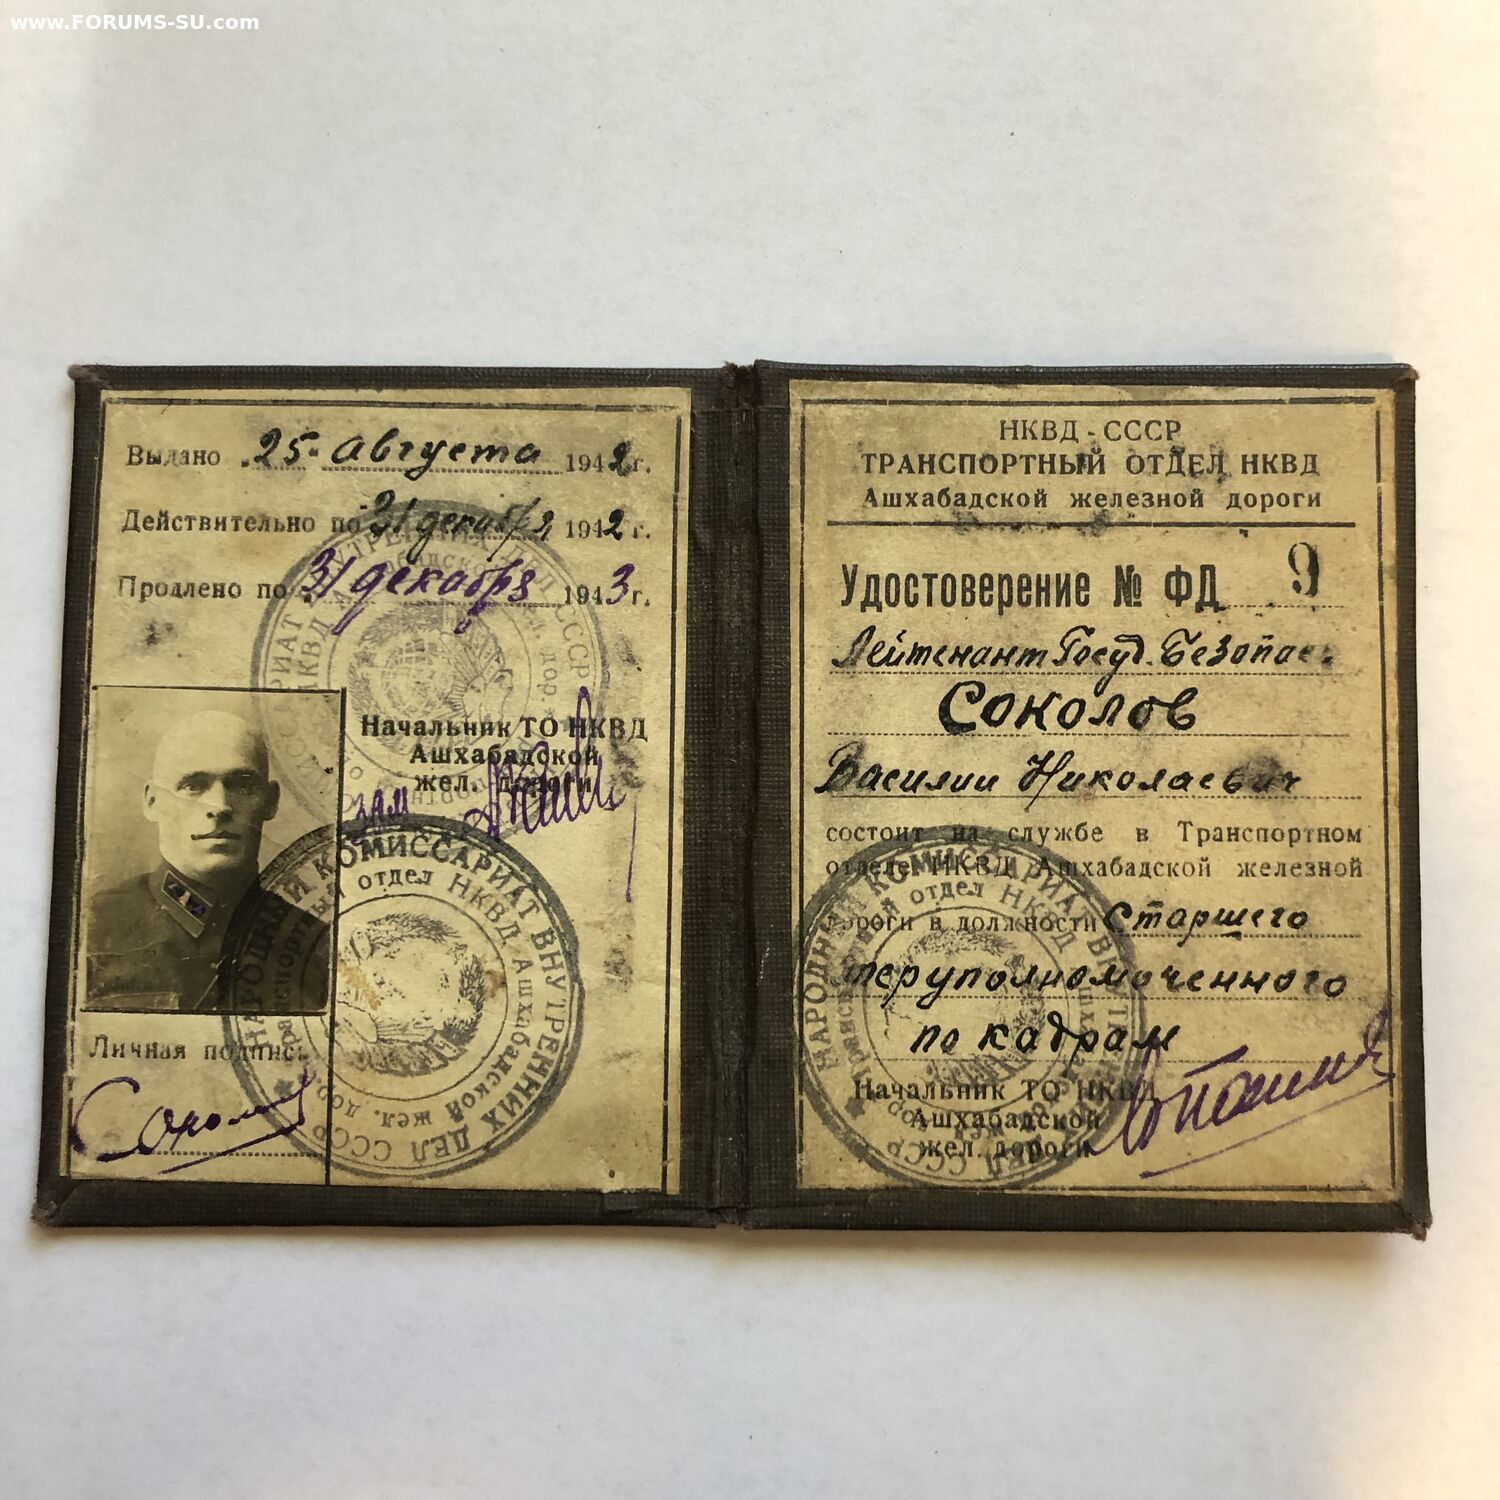 www.FORUMS-SU.com
Выдано 25 августа 1942 г.
Действительно по 31 декабря 1942 г.
Продлено по 31 декабря 1943 г.
Начальник ТО НКВД
Ашхабадской
жел. дороги
зам
НАРОДНЫЙ КОМИССАРИАТ ВНУТРЕННИХ ДЕЛ СССР
Транспортный отдел НКВД Ашхабадской жел. дор.
Личная подпись
Соколов
НКВД - СССР
ТРАНСПОРТНЫЙ ОТДЕЛ НКВД
Ашхабадской железной дороги
Удостоверение № ФД 9
Лейтенант Госуд. Безопас.
Соколов
Василии Николаевич
состоит на службе в Транспортном
отделе НКВД Ашхабадской железной
дороги в должности Старшего
оперуполномоченного
по кадрам
Начальник ТО НКВД
Ашхабадской
жел. дороги